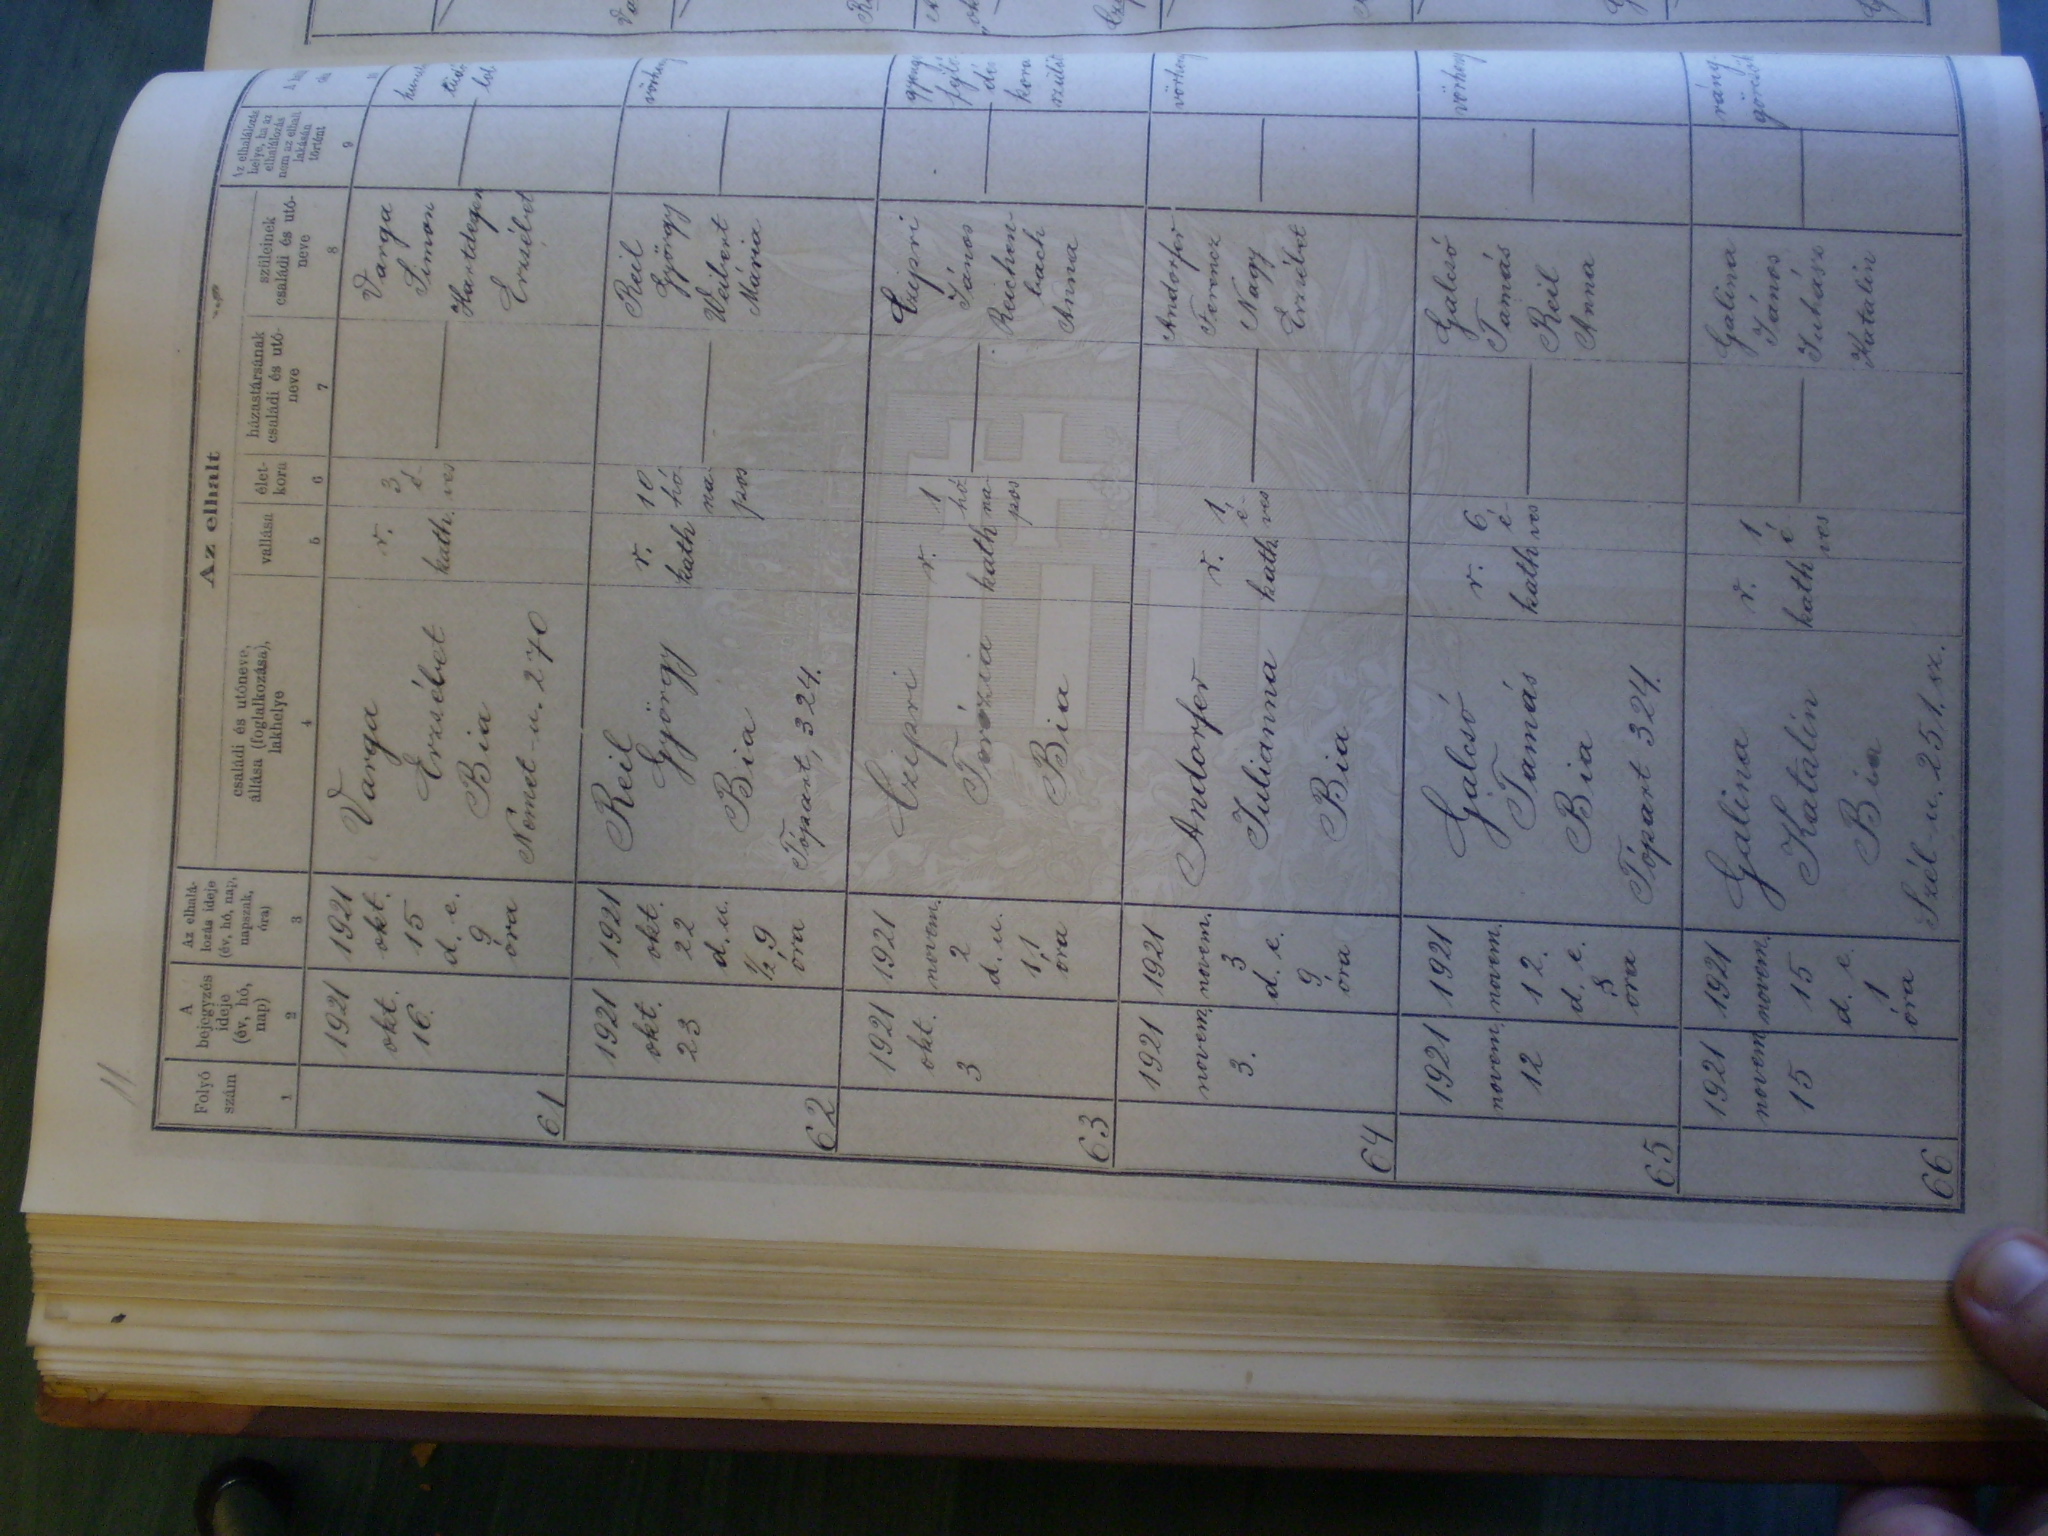 11.
Az elhalt
Folyó
szám
A
bejegyzés
ideje
(év, hó,
nap)
Az elhalá-
lozás ideje
(év, hó, nap,
napszak,
óra)
családi és utóneve,
állása (foglalkozása),
lakhelye
vallása
élet-
kora
házastársának
családi és utó-
neve
szüleinek
családi és utó-
neve
Az elhalálozás
helye, ha az
elhalálozás
nem az elhalt
lakásán
történt
1
2
3
4
5
6
7
8
9
61
1921
okt.
16.
1921
okt.
15
d. e.
9
óra
Varga
Erzsébet
Bia
Német-u. 270
r.
kath.
3
é
ves
Varga
Simon
Hartdegen
Erzsébet
62
1921
okt.
23
1921
okt.
22
d. u.
1/2 9
óra
Reil
György
Bia
Tópart, 324.
r.
kath
10
hó
na
pos
Reil
György
Weibert
Mária
vörheny
63
1921
okt.
3
1921
novem.
2
d. u.
11
óra
Czipri
Terézia
Bia
r.
kath
1
hó
na-
pos
Czipri
János
Reichen-
bach
Anna
kora
szülött
64
1921
novem.
3.
1921
novem.
3
d. e.
9
óra
Andorfer
Julianna
Bia
r.
kath.
1
é-
ves
Andorfer
Ferencz
Nagy
Erzsébet
vörheny
65
1921
novem.
12
1921
novem.
12.
d. e.
8
óra
Galcsó
Tamás
Bia
Tópart 324.
r.
kath
6
é-
ves
Galcsó
Tamás
Reil
Anna
vörheny
66
1921
novem
15
1921
novem.
15
d. e.
1
óra
Galina
Katalin
Bia
Szél-u. 251. sz.
r.
kath
1
é
ves
Galina
János
Juhász
Katalin
ráng-
görcsök